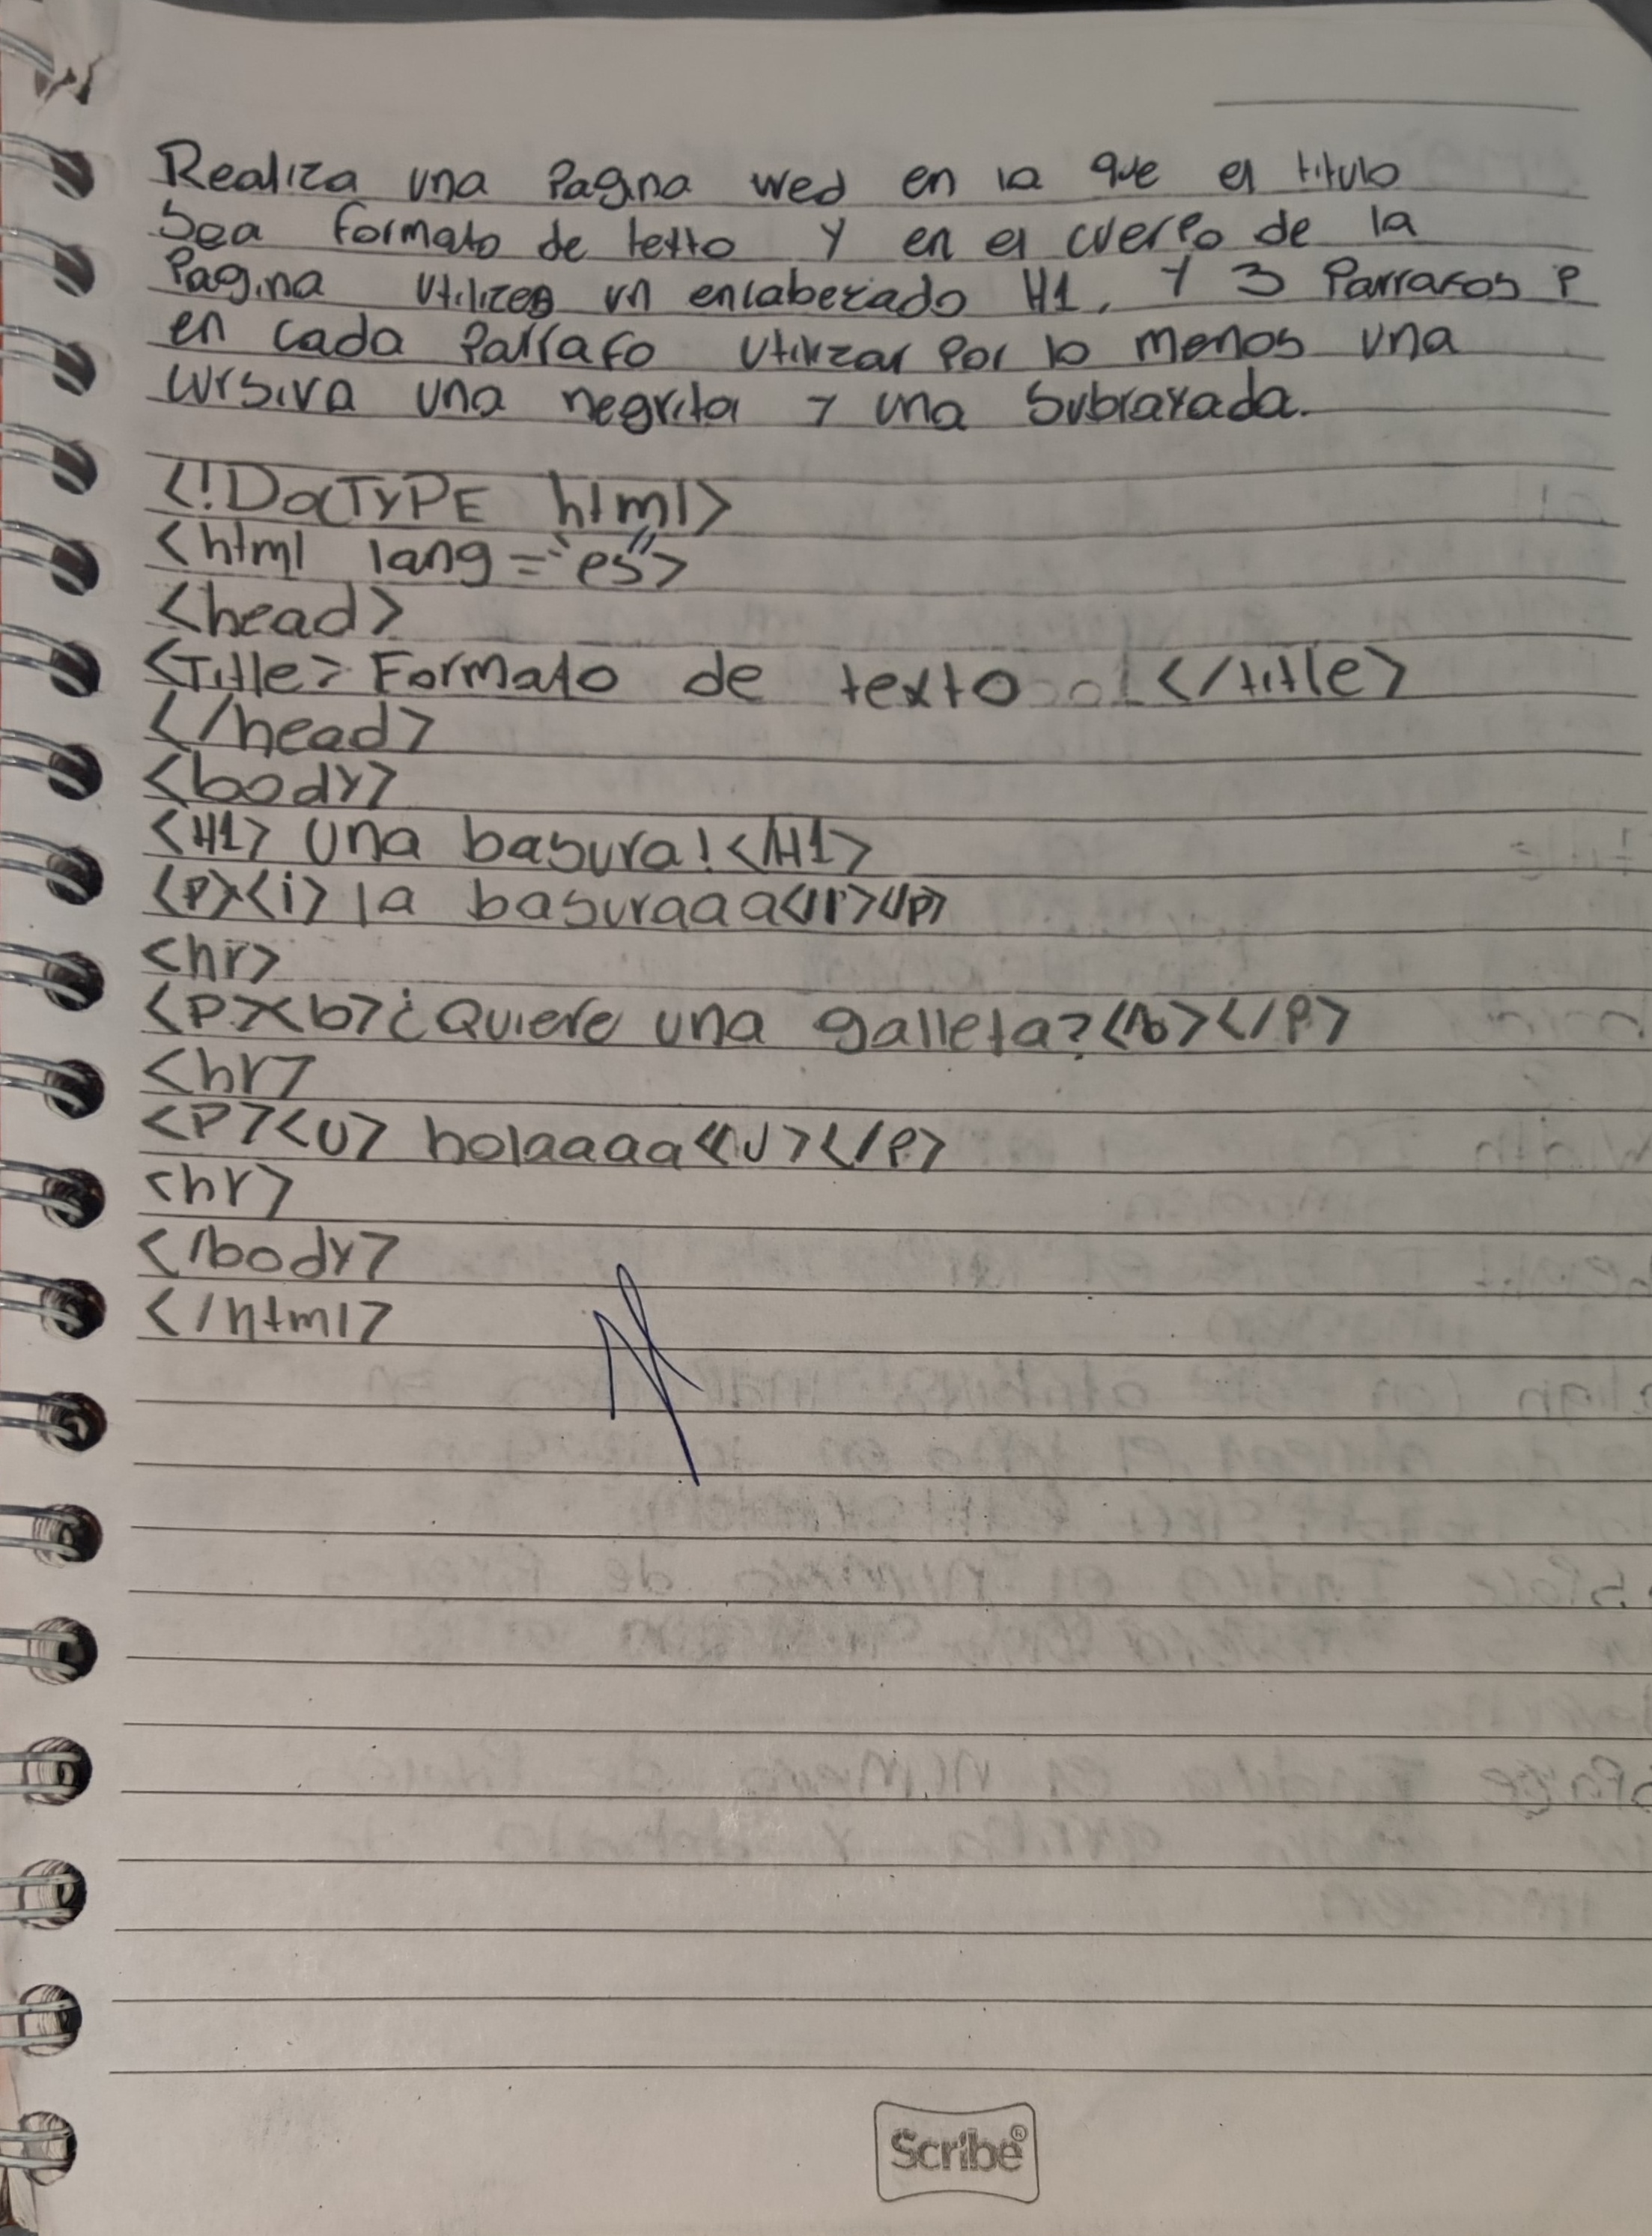 Realiza una Pagina wed en la que el titulo
Sea formato de texto y en el cuerpo de la
Pagina utilices un encabezado H1, y 3 Parrafos P
en cada Parrafo utilizar Por lo menos una
cursiva una negrita y una Subrayada.
<!DOCTYPE html>
<html lang="es">
<head>
<Title> Formato de texto </title>
</head>
<body>
<H1> Una basura!</H1>
<P><i> la basuraaa</i></p>
<hr>
<P><b>¿Quiere una galleta?</b></P>
<hr>
<P><U> holaaaa</U></P>
<hr>
</body>
</html>
Scribe®